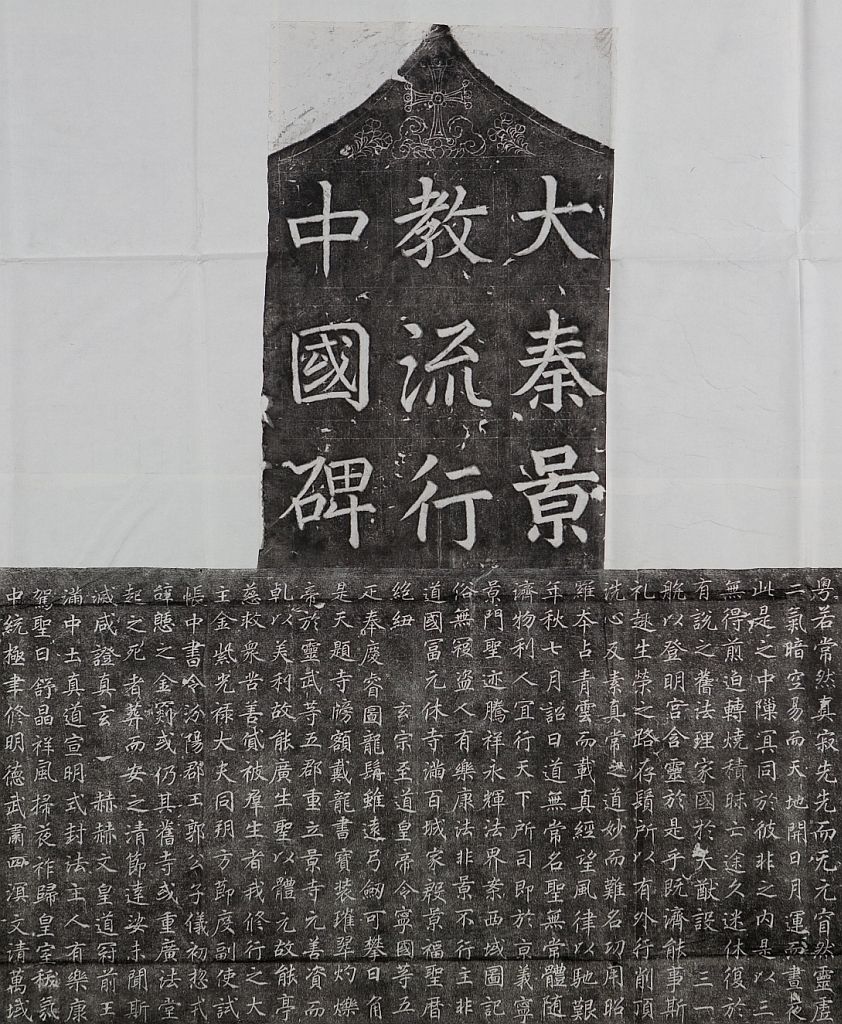 大秦景
教流行
中國碑
粵若常然真寂先先而无元窅然靈虛
二氣暗空易而天地開日月運而晝夜
此是之中隟冥同於彼非之內是以三
無得煎迫轉燒積昧亡途久迷休復於
有說之舊法理家國於大猷設 三一
舩以登明宮含靈於是乎既濟能事斯
礼趣生榮之路存鬚所以有外行削頂
洗心反素真常之道妙而難名功用昭
羅本占青雲而載真經望風律以馳艱
年秋七月詔曰道無常名聖無常體隨
濟物利人宜行天下所司即於京義寧
景門聖迹騰祥永輝法界案西域圖記
俗無寇盜人有樂康法非景不行主非
道國冨元休寺滿百城家殷景福聖曆
絕紐 玄宗至道皇帝令寧國等五
疋奉慶睿圖龍髯雖遠弓劒可攀日角
是天題寺牓額戴龍書寶裝璀翠灼爍
亮於靈武等五郡重立景寺元善資而
乹以美利故能廣生聖以體元故能亭
慈救衆苦善貸被羣生者我修行之大
主金紫光祿大夫同朔方節度副使試
帳中書令汾陽郡王郭公子儀初揔戎
罇懸之金罽或仍其舊寺或重廣法堂
起之死者葬而安之清節達娑未聞斯
滅咸證真玄 一 赫赫文皇道冠前王
滿中土真道宣明式封法主人有樂康
駕聖日舒晶祥風掃夜祚歸皇室秡氛
中統極聿修明德武肅四溟文清萬域